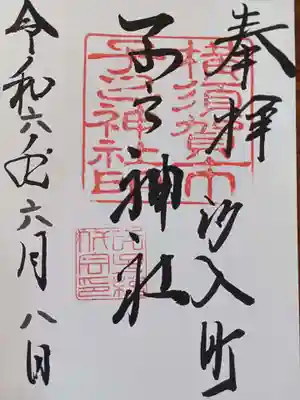 奉拝 汐入町
横須賀市
子之神社
子之神社印
令和六年六月八日